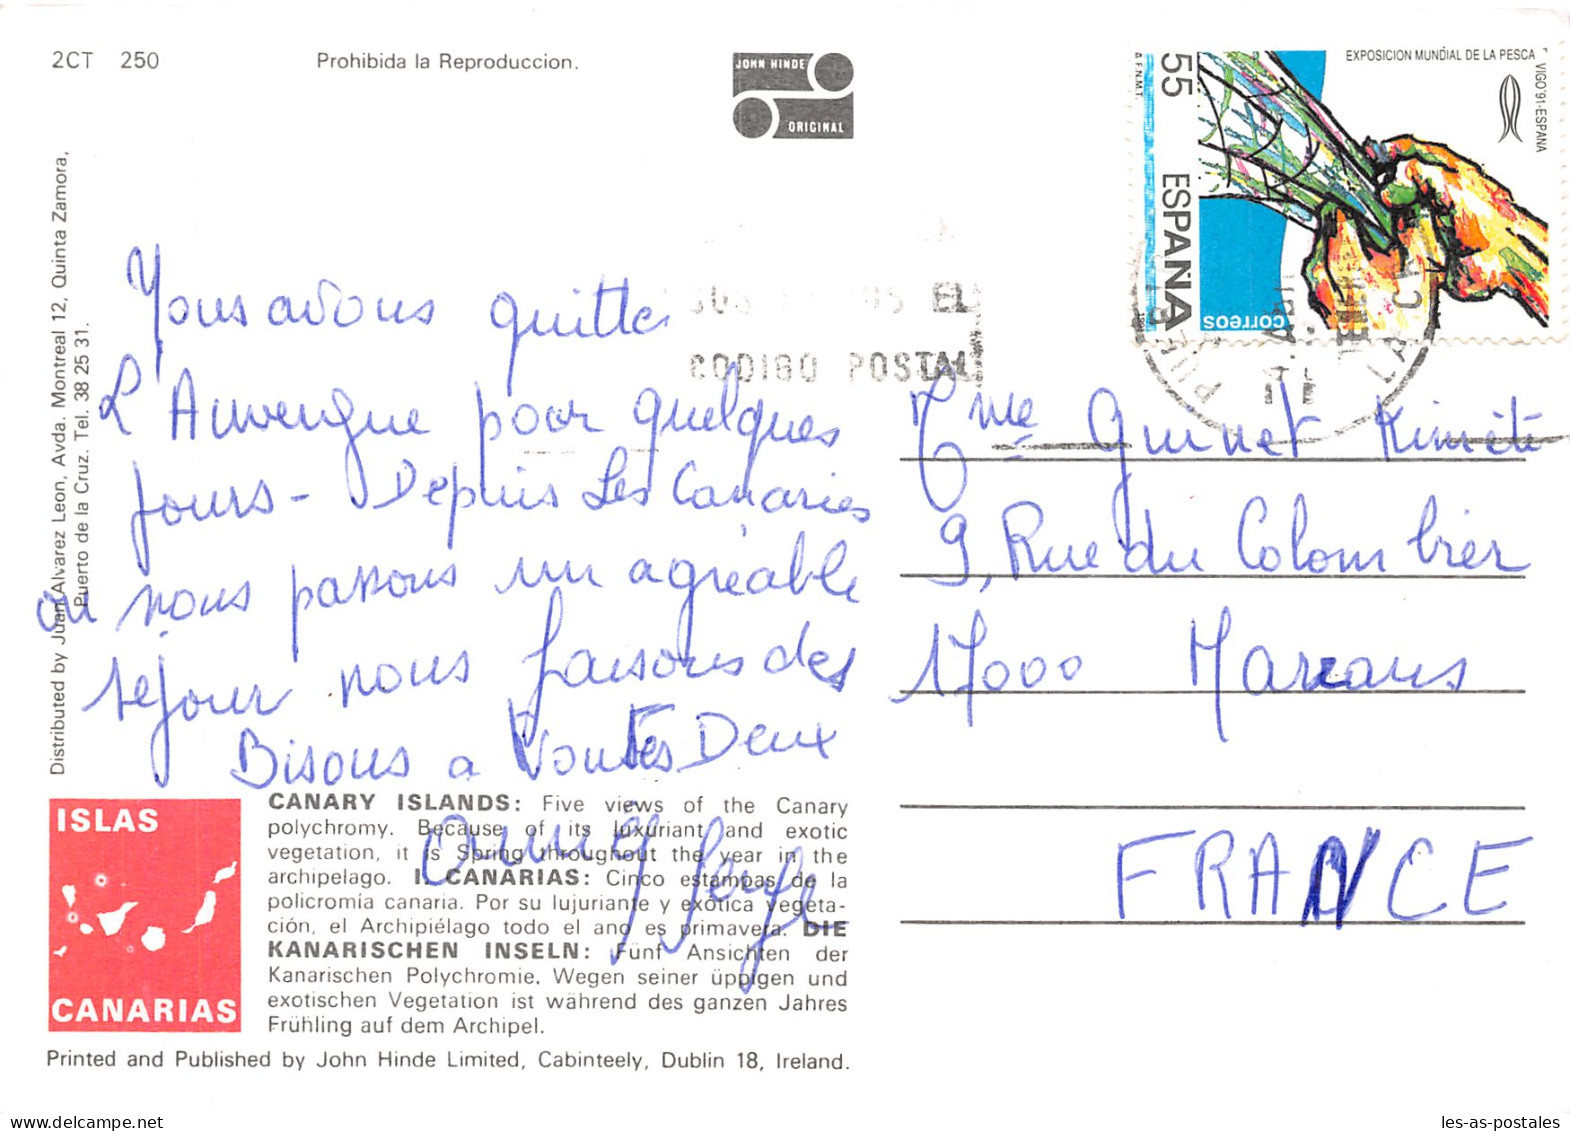 2CT 250
Prohibida la Reproduccion.
JOHN HINDE
ORIGINAL
EXPOSICION MUNDIAL DE LA PESCA
VIGO'91-ESPAÑA
55
ESPAÑA
correos
F.N.M.T.
Distributed by Juan Alvarez Leon, Avda. Montreal 12, Quinta Zamora,
Puerto de la Cruz. Tel. 38 25 31.
EL
CODIGO POSTAL
Nous avons quitter
L'Auvergne pour quelques
jours - Depuis Les Canaries
ou nous passons un agréable
séjour nous faisons des
Bisous a Vous Deux
Serge
Mme Guinet
9, Rue du Colombier
17000 Marans
FRANCE
ISLAS
CANARIAS
CANARY ISLANDS: Five views of the Canary
polychromy. Because of its luxuriant and exotic
vegetation, it is Spring throughout the year in the
archipelago. I. CANARIAS: Cinco estampas de la
policromía canaria. Por su lujuriante y exótica vegeta-
ción, el Archipiélago todo el ano es primavera. DIE
KANARISCHEN INSELN: Fünf Ansichten der
Kanarischen Polychromie. Wegen seiner üppigen und
exotischen Vegetation ist während des ganzen Jahres
Frühling auf dem Archipel.
Printed and Published by John Hinde Limited, Cabinteely, Dublin 18, Ireland.
les-as-postales